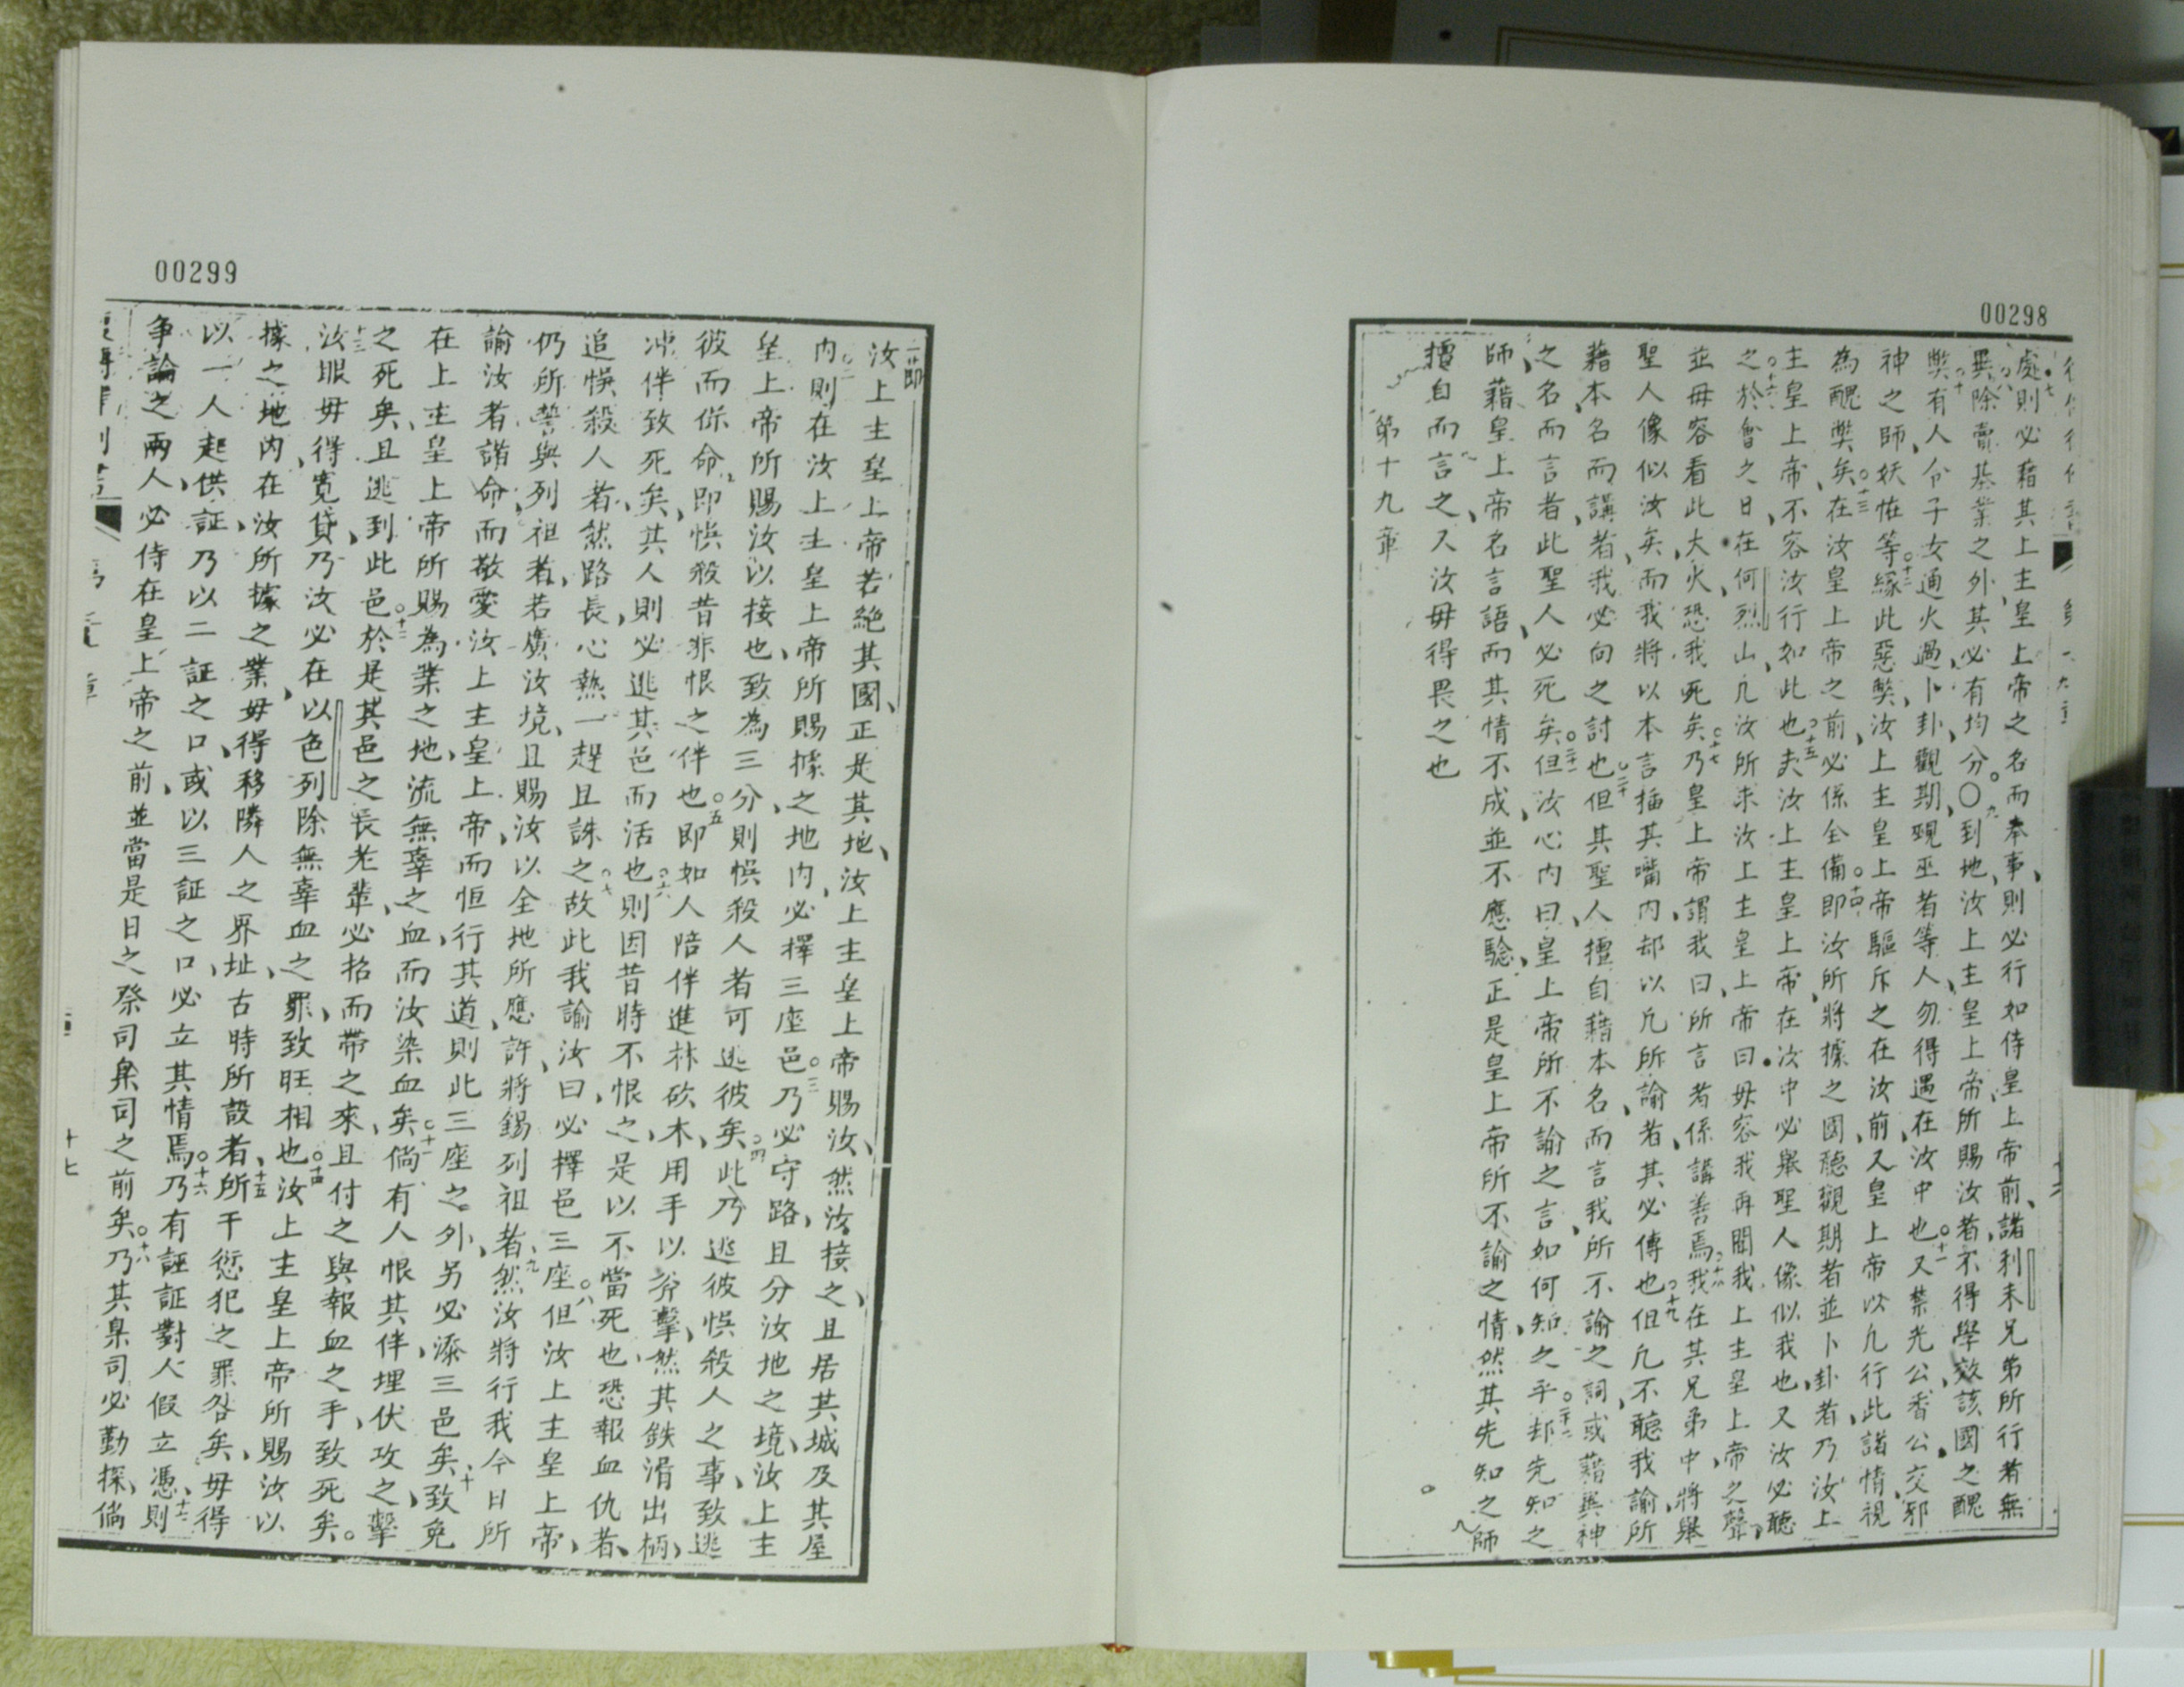 00298
處則必藉其上主皇上帝之名而奉事、則必行如侍皇上帝前、諸利未兄弟所行者無
異除賣基業之外其必有均分。〇到地汝上主皇上帝所賜汝者、不得學效該國之醜
獘有人令子女通火過卜卦、觀期、覡巫者等人勿得遇在汝中也又禁光公香公交邪
神之師妖怪等緣此惡獘、汝上主皇上帝驅斥之在汝前、又皇上帝以凡行此諸情視
為醜獘矣在汝皇上帝之前必係全備即汝所將據之國聽觀期者並卜卦者乃汝上
主皇上帝、不容汝行如此也夫汝上主皇上帝在汝中必舉聖人像似我也又汝必聽
之於會之日在何烈山凡汝所求汝上主皇上帝曰毋容我再聞我上主皇上帝之聲、
並毋容看此大火恐我死矣乃皇上帝謂我曰所言者係講善焉我在其兄弟中將舉
聖人像似汝矣而我將以本言插其嘴內却以凡所諭者其必傳也但凡不聽我諭所
藉本名而講者我必向之討也但其聖人擅自藉本名而言我所不諭之詞或藉異神
之名而言者此聖人必死矣但汝心內曰皇上帝所不諭之言如何知之乎却先知之
師藉皇上帝名言語而其情不成並不應驗正是皇上帝所不諭之情然其先知之師
擅自而言之又汝毋得畏之也
第十九章
00299
一節
汝上主皇上帝若絕其國、正是其地、汝上主皇上帝賜汝、然汝接之、且居其城及其屋
內則在汝上主皇上帝所賜據之地內必擇三座邑乃必守路、且分汝地之境、汝上主
皇上帝所賜汝以接也致為三分則悞殺人者可逃彼矣此乃逃彼悞殺人之事致逃
彼而保命、即悞殺昔非恨之伴也即如人陪伴進林砍木、用手以斧擊、然其鉄滑出柄、
冲伴致死矣其人則必逃其邑而活也則因昔時不恨之是以不當死也恐報血仇者、
追悞殺人者、然路長心熱一趕且誅之故此我諭汝曰必擇邑三座但汝上主皇上帝、
仍所誓與列祖者、若廣汝境、且賜汝以全地所應許將錫列祖者、然汝將行我今日所
諭汝者誥命而敬愛汝上主皇上帝而恒行其道則此三座之外另必添三邑矣致免
在上主皇上帝所賜為業之地、流無辜之血、而汝染血矣倘有人恨其伴埋伏攻之擊
之死矣、且逃到此邑於是其邑之長老輩必招而帶之來、且付之與報血之手、致死矣。
汝眼毋得寬貸乃汝必在以色列除無辜血之罪致旺相也汝上主皇上帝所賜汝以
據之地內在汝所據之業毋得移隣人之界址古時所設者所干愆犯之罪咎矣毋得
以一人起供証乃以二証之口或以三証之口必立其情焉乃有誣証對人假立憑則
争論之兩人必侍在皇上帝之前、並當是日之祭司臬司之前矣乃其臬司必勤探倘
十七